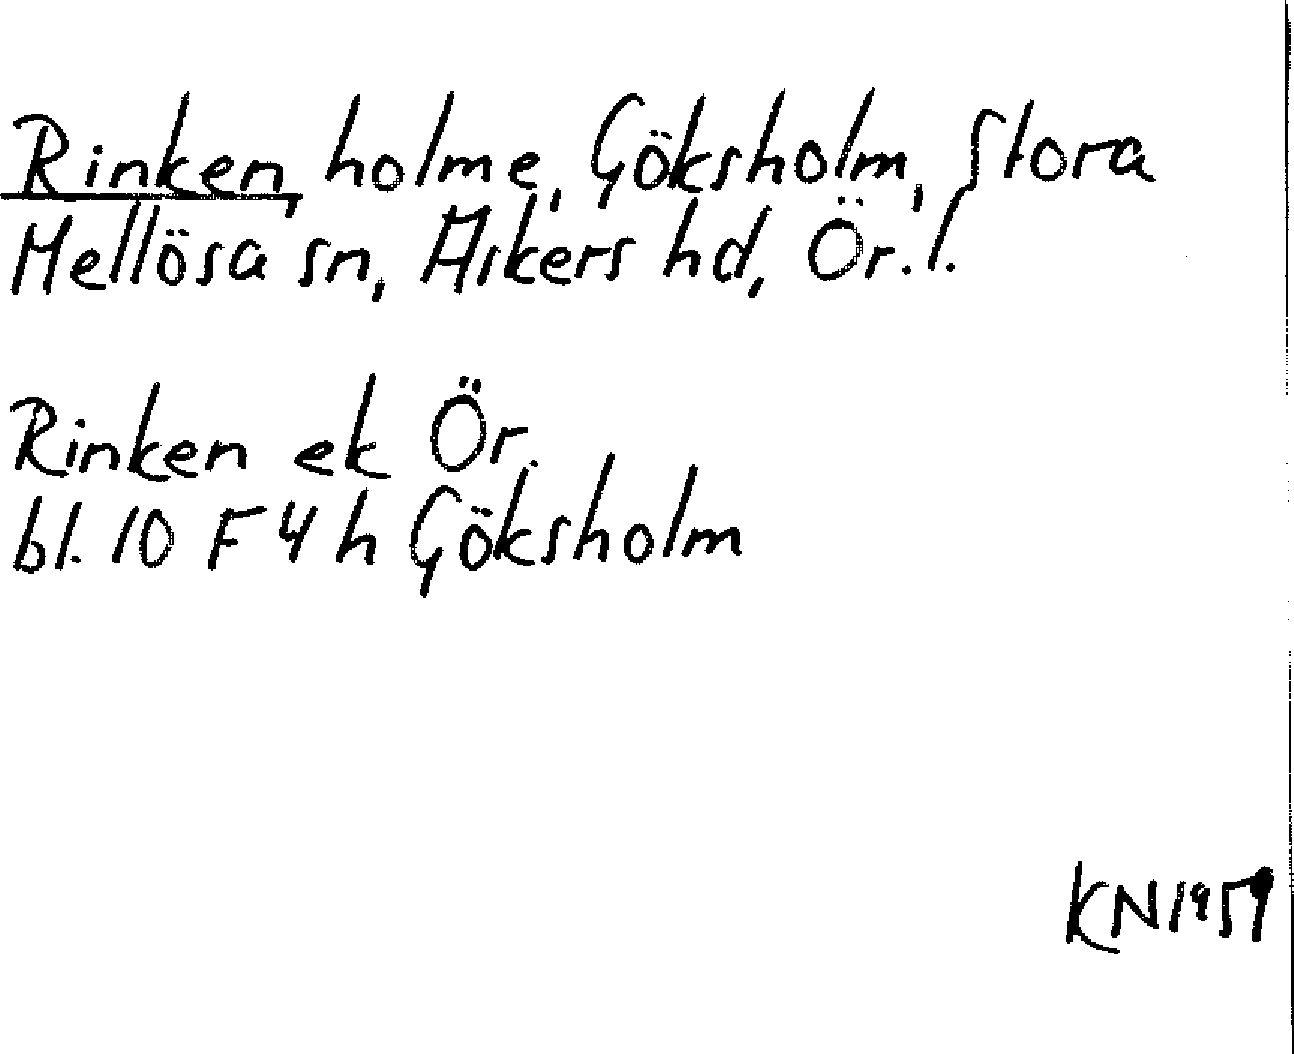 Rinken, holme, Göksholm, Stora
Mellösa sn, Askers hd, Ör. l.
Rinken ek Ör.
bl. 10 F 4 h Göksholm
KN 1959